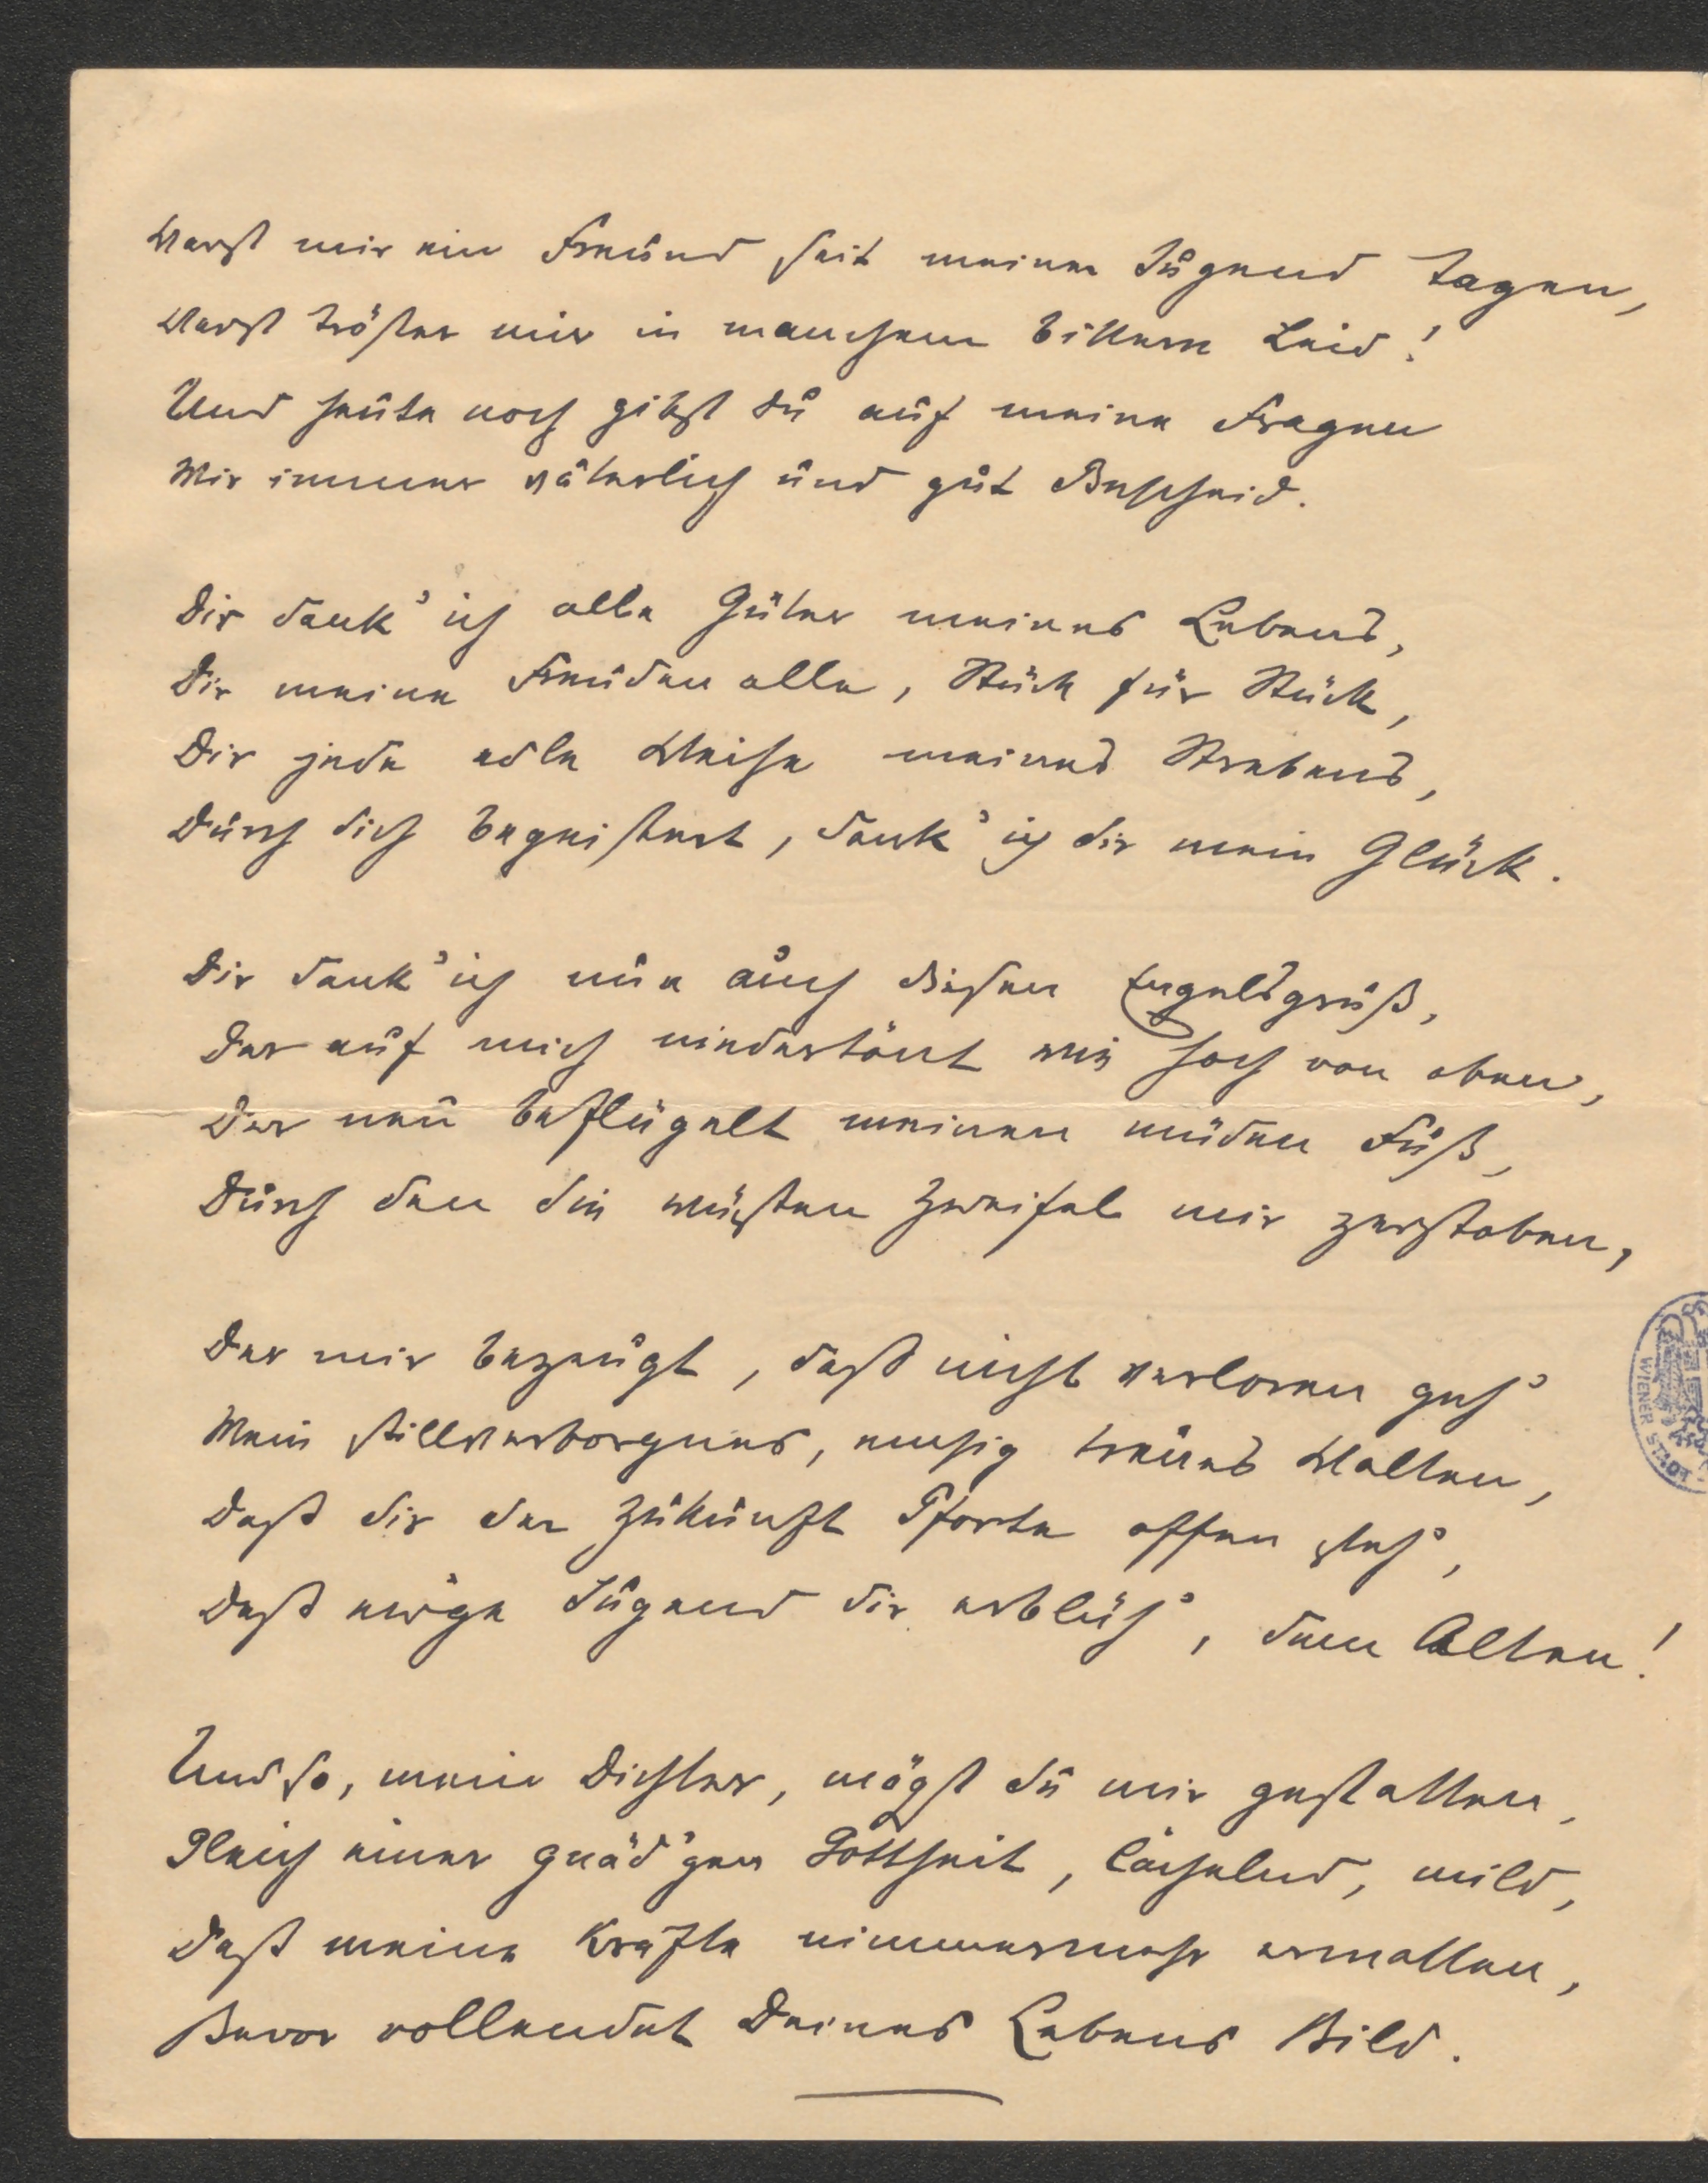 Warst mir ein Freund seit meinen Jugend Tagen,
Warst Tröster mir in manchem bittern Leid!
Und heute noch gibst du auf meine Fragen
Mir immer väterlich und gut Bescheid.
Dir dank' ich alle Güter meines Lebens,
Dir meine Freuden alle, Stück für Stück,
Dir jede edle Weise meines Strebens,
Durch dich begeistert, dank' ich dir mein Glück.
Dir dank' ich nun auch diesen Engelsgruß,
Der auf mich niedertönt wie hoch von oben,
Der neu beflügelt meinen müden Fuß,
Durch den die wüsten Zweifel mir zerstoben,
Der mir bezeugt, dass nicht verloren geh'
Mein stillverborgnes, emsig treues Walten,
Dass dir der Zukunft Pforte offen steh',
Dass ew'ge Jugend dir erblüh', dem Alten!
Und so, mein Dichter, mögst du mir gestatten,
Gleich einer gnäd'gen Gottheit, lächelnd, mild,
Dass meine Kräfte nimmermehr ermatten,
Bevor vollendet Deines Lebens Bild.
WIENER STADT